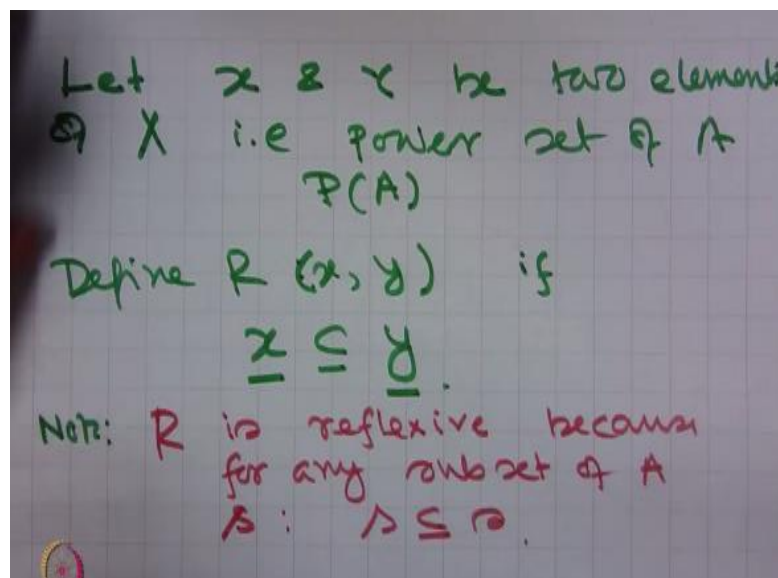 Let x & Y be two elements
of X i.e power set of A
P(A)
Define R (x, y) if
x ⊆ y.
Note: R is reflexive because
for any subset of A
s: s ⊆ s.